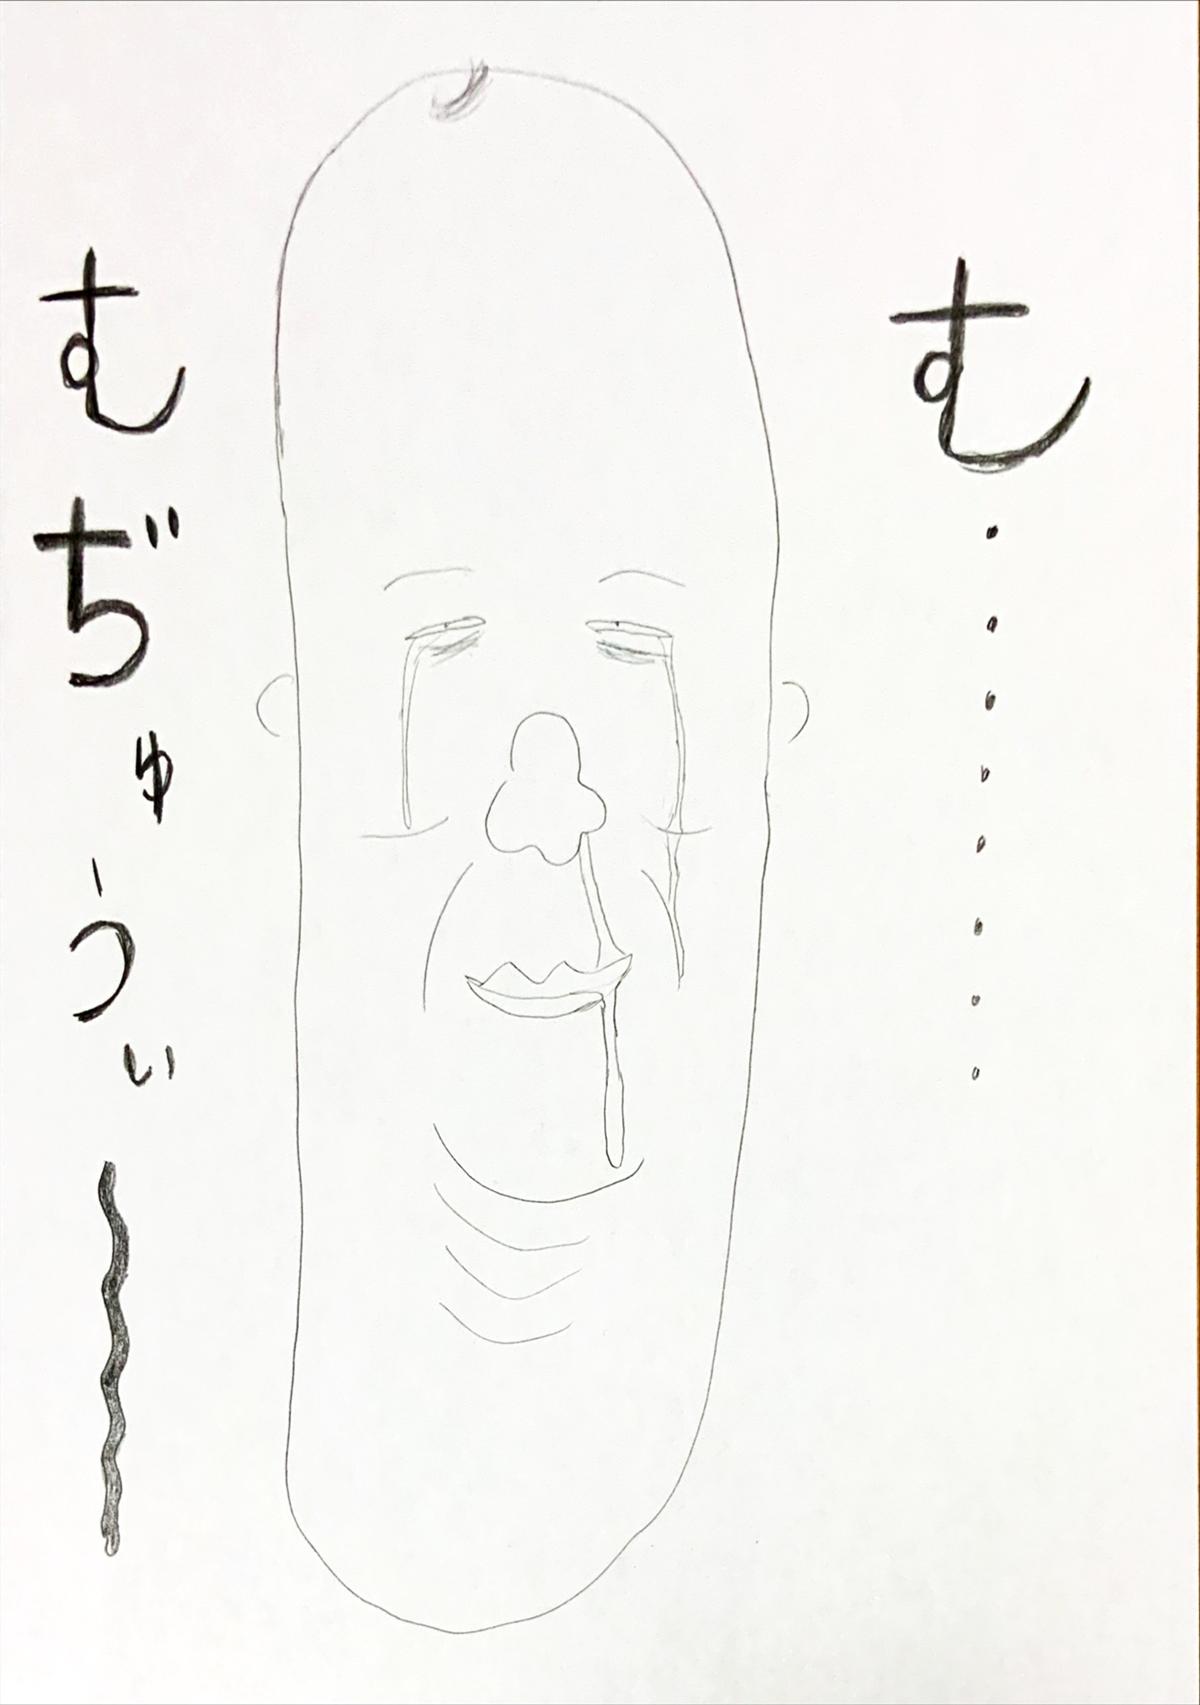 む・・・・・・・・
むぢゅうぃ〜